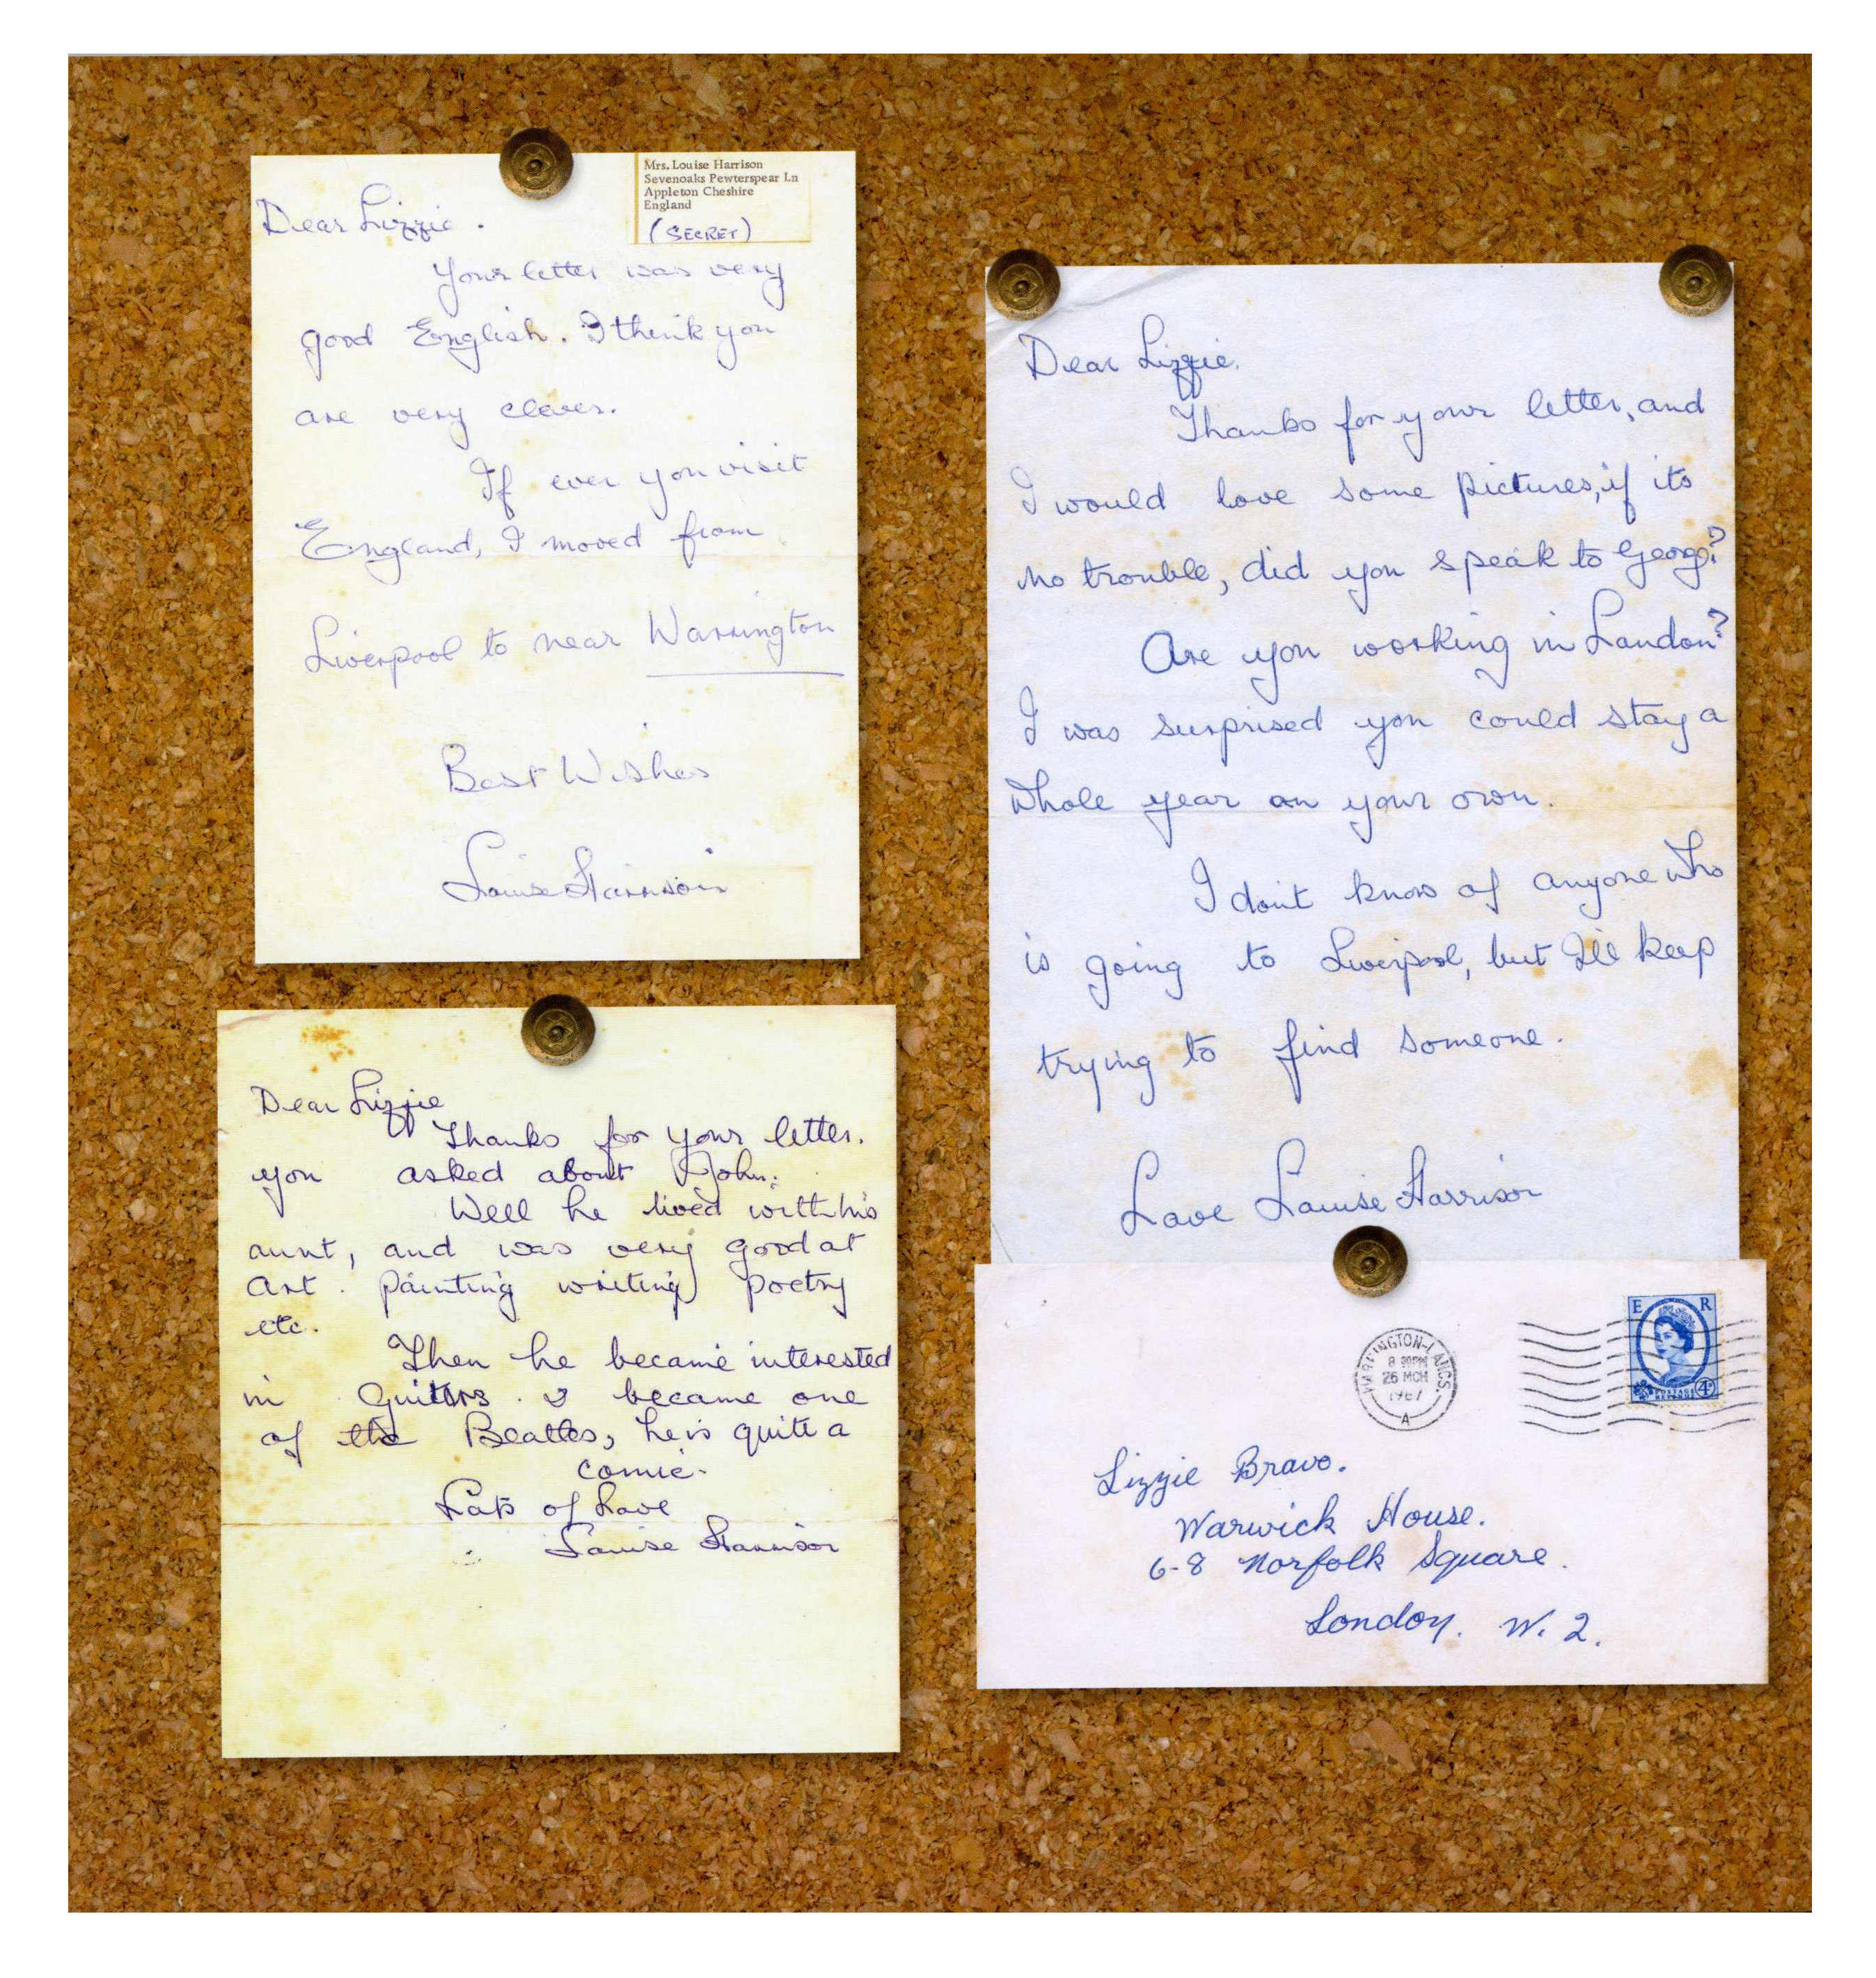 Mrs. Louise Harrison
Sevenoaks Pewterspear Ln
Appleton Cheshire
England
(SECRET)
Dear Lizzie.
Your letter was very
good English. I think you
are very clever.
If ever you visit
England, I moved from
Liverpool to near Warrington
Best Wishes
Louise Harrison
Dear Lizzie
Thanks for your letter.
you asked about John.
Well he lived with his
aunt, and was very good at
Art. painting writing poetry
etc.
Then he became interested
in Guitars & became one
of the Beatles, he is quite a
comic.
Lots of Love
Louise Harrison
Dear Lizzie.
Thanks for your letter, and
I would love some pictures, if its
no trouble, did you speak to George?
Are you working in London?
I was surprised you could stay a
whole year on your own.
I don't know of anyone who
is going to Liverpool, but I'll keep
trying to find someone.
Love Louise Harrison
E R
WARRINGTON-LANCS.
8 30PM
26 MCH
1967
A
POSTAGE
REVENUE
4D
Lizzie Bravo.
Warwick House.
6-8 Norfolk Square.
London. W. 2.